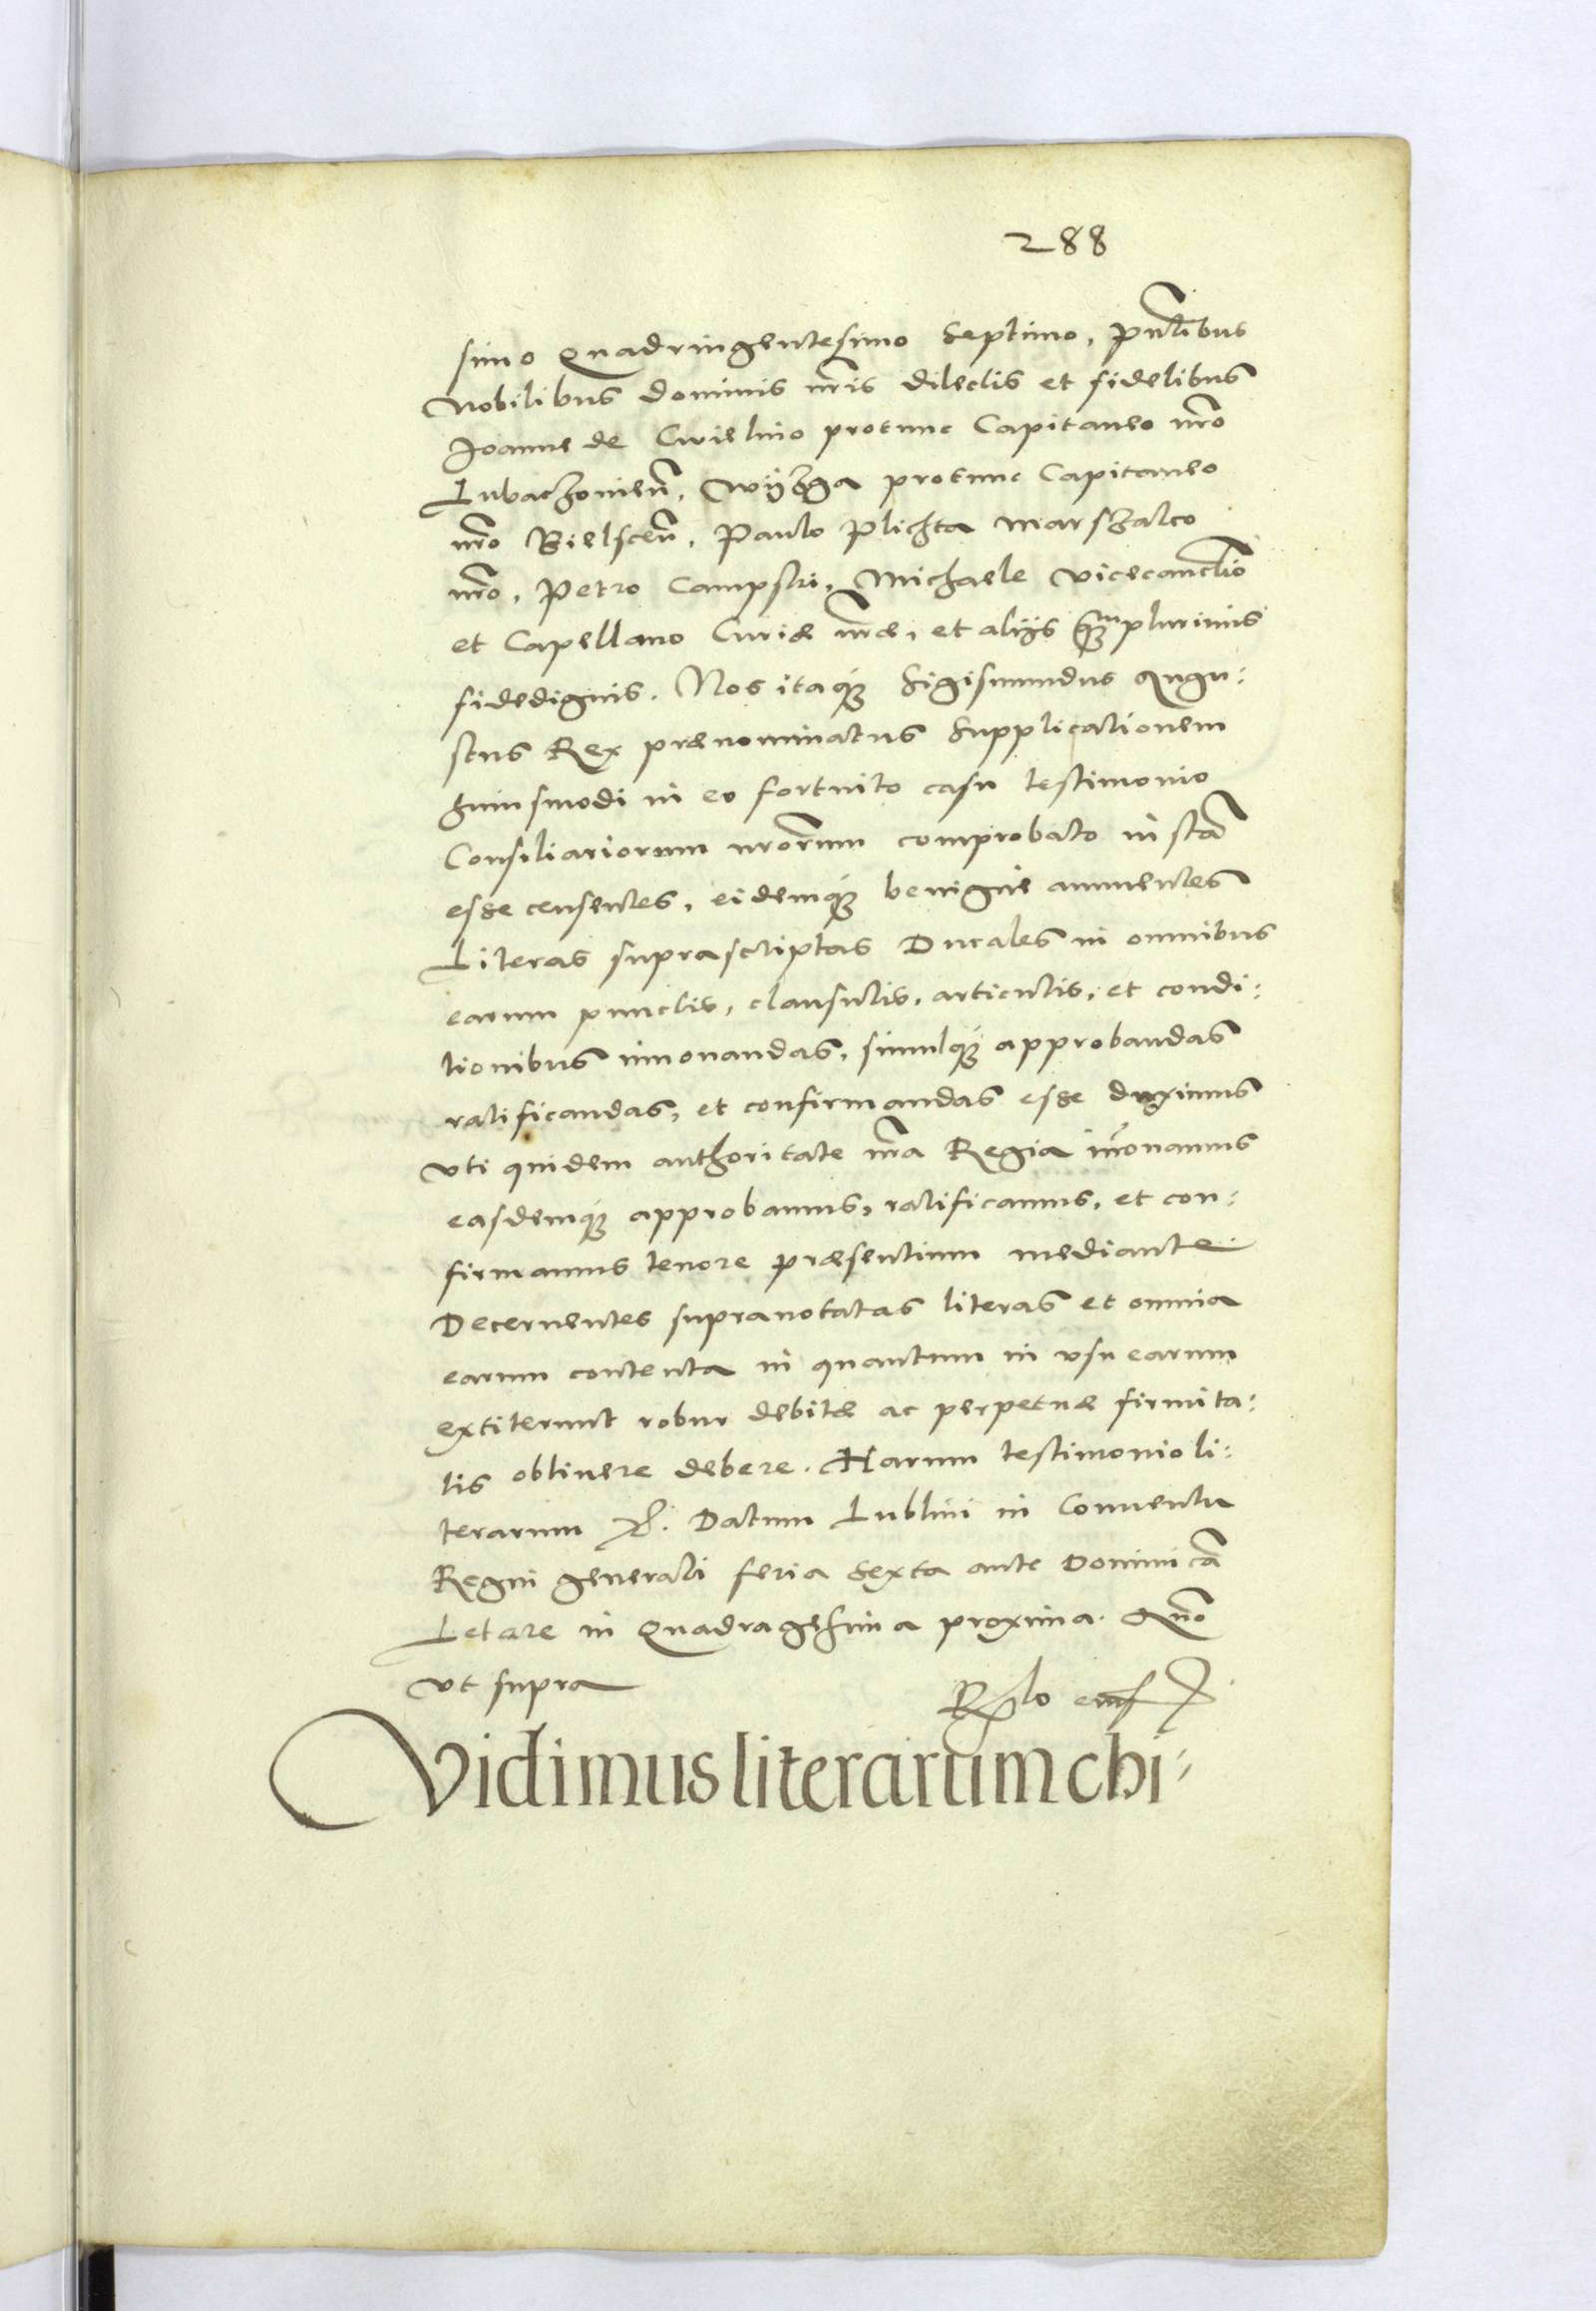 288
simo Quadringentesimo Septimo, Pñtibus
Nobilibus Dominis nr̃is dilectis et fidelibus
Joanne de Cwielino protunc Capitaneo nr̃o
Lubaczonieñ, Wyzga protunc Capitaneo
nr̃o Bielsceñ, Paulo Plichta Marszalco
nr̃o, Petro Campski, Michaele Vicecancl̃io
et Capellano Curiæ nr̃æ, et alijs q̃mplurimis
fidedignis. Nos itaq́ue Sigismundus Augu:
stus Rex prænominatus Supplicationem
huiusmodi in eo fortuito casu testimonio
Consiliariorum nr̃orum comprobato iustã
esse censentes, eidemq́ue benigne annuentes
Literas suprascriptas Ducales in omnibus
earum punctis, clausulis, articulis, et condi:
tionibus innouandas, simulq́ue approbandas
ratificandas, et confirmandas esse duximus
vti quidem authoritate nr̃a Regia iñouamus
easdemq́ue approbamus, ratificamus, et con:
firmamus tenore præsentium mediante.
Decernentes supranotatas literas et omnia
earum contenta in quantum in vsu earum
extiterunt robur debitæ ac perpetuæ firmita:
tis obtinere debere. Harum testimonio li:
terarum &. Datum Lublini in Conuentu
Regni generali feria Sexta ante Dominicã
Letare in Quadragesima proxima. Año
vt supra
Rl̃o
Vidimus literarum chi: